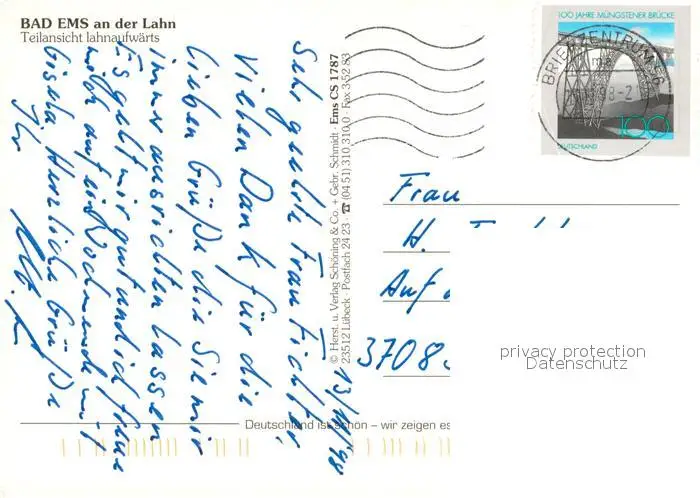 BAD EMS an der Lahn
Teilansicht lahnaufwärts
100 JAHRE MÜNGSTENER BRÜCKE
BRIEFZENTRUM 56
100
DEUTSCHLAND
13/11/98
Sehr geehrte Frau Fichtler,
Vielen Dank für die
lieben Grüße die Sie mir
immer ausrichten lassen
Es geht mir gut und ich freue
mich auf ein Wochenende mit
Gisela. Herzliche Grüße
Ihr
© Herst. u. Verlag Schöning & Co. + Gebr. Schmidt · Ems CS 1787
23512 Lübeck · Postfach 24 23 · ☎ (04 51) 310 310,0 · Fax 3 52 83
Frau
H.
Auf
3708
privacy protection
Datenschutz
Deutschland ist schön – wir zeigen es